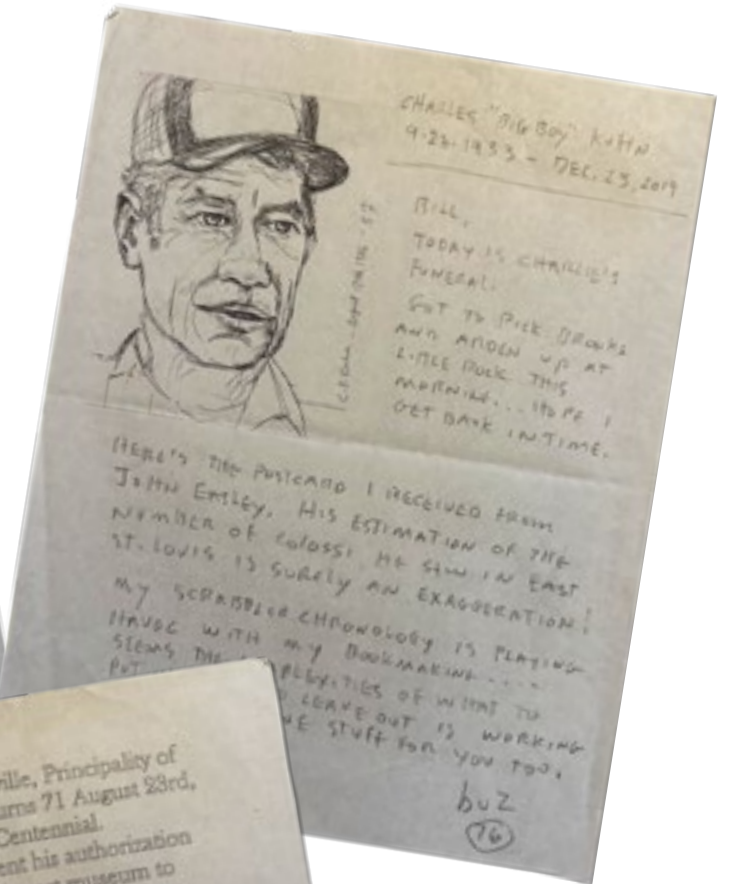 CHARLES "BIG BOY" KUHN
9.23.1933 - DEC. 23, 2019
BILL,
TODAY IS CHARLIE'S
FUNERAL.
GOT TO PICK BROOKS
AND ARDEN UP AT
LITTLE ROCK THIS
MORNING... HOPE I
GET BACK IN TIME.
HERE'S THE POSTCARD I RECEIVED FROM
JOHN EASLEY. HIS ESTIMATION OF THE
NUMBER OF COLOSSI HE SAW IN EAST
ST. LOUIS IS SURELY AN EXAGGERATION!
MY SCRABBLED CHRONOLOGY IS PLAYING
HAVOC WITH MY BOOKMAKING....
SEEMS THE OF WHAT TO
PUT LEAVE OUT IS WORKING
STUFF FOR YOU TOO.
buz
76
ville, Principality of
urns 71 August 23rd,
Centennial.
ent his authorization
museum to